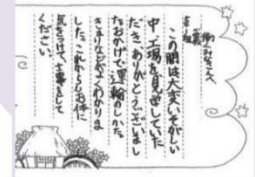 この間は大変いそがしい
中、工場を見せていた
だきありがとうございまし
た。おかげで運輸のしかた、
きまりなどがよくわかりま
した。これからもお体に
気をつけて、仕事をして
ください。